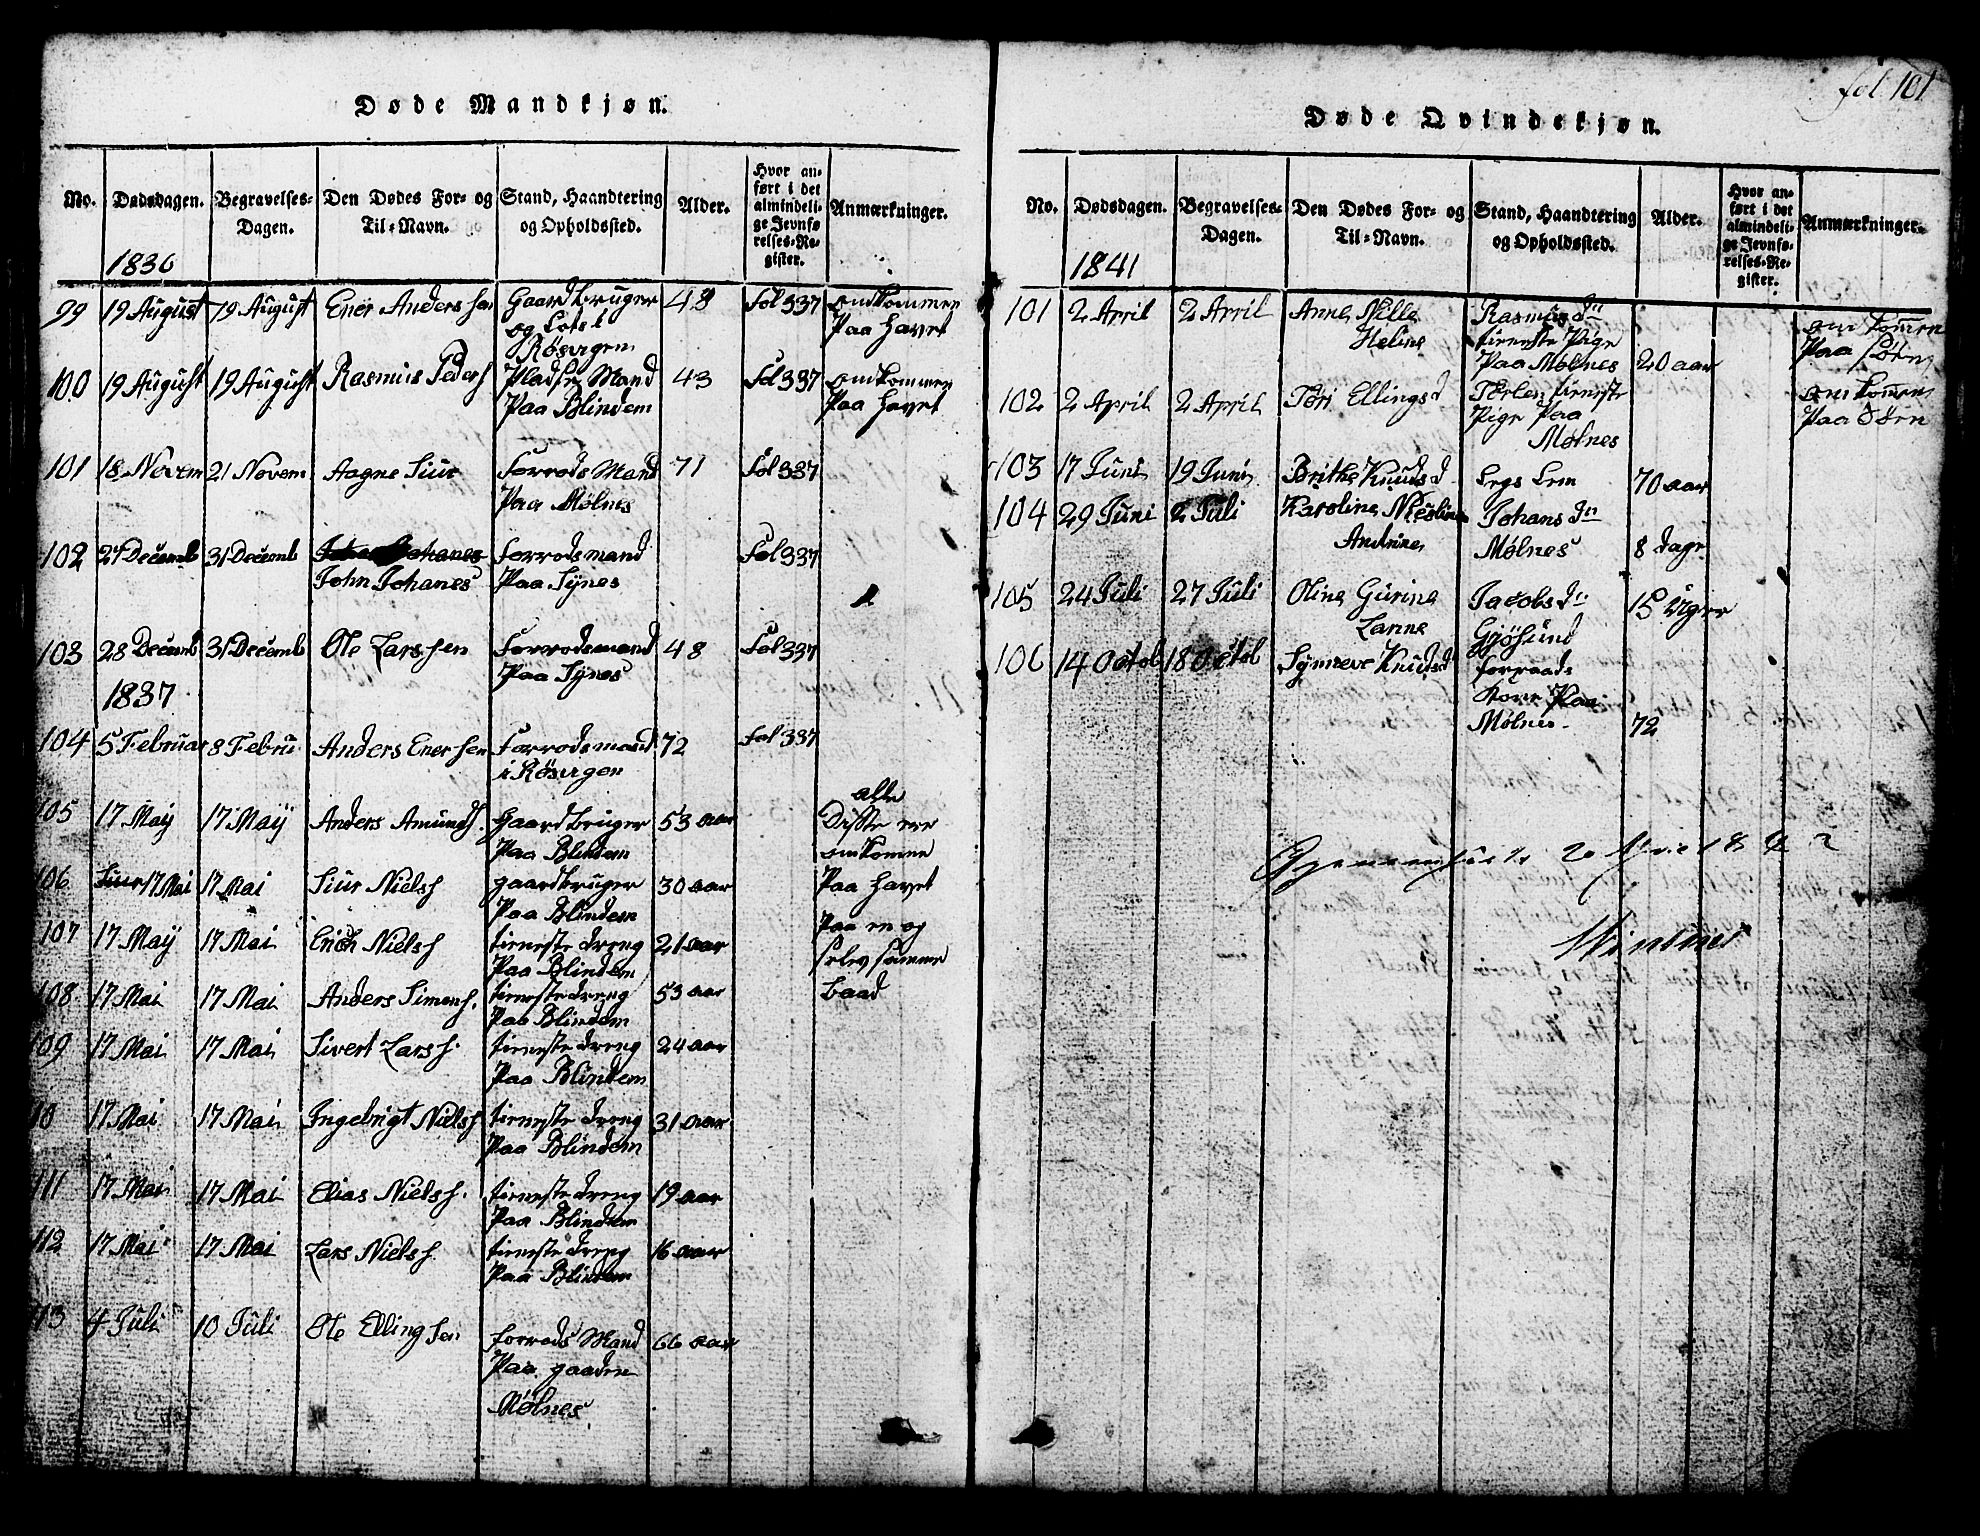 Døde Mandkjøn.
No. Dødsdagen. Begravelses-Dagen. Den Dødes For- og Til-Navn. Stand, Haandtering og Opholdssted. Alder. Hvor anført i det almindelige Jevnførelses-Register. Anmærkninger.
1836
99 19 August 19 August Ener Andershen Gaardbruger 48 Fol 337 omkommen
og Lots i Paa Havet
Røsvigen
100 19 August 19 August Rasmus Pedersh Pladse Mand 43 Fol 337 omkommen
Paa Blindem Paa Havet
101 18 Novem 21 Novem Aagne Siur Forrods Mand 71 Fol 337
Paa Mølnes
102 27 Decemb 31 Decemb Johanes Forrodsmand Fol 337
John Johanes Paa Synes
103 28 Decemb 31 Decemb Ole Larshen Forrodsmand 48 Fol 337
Paa Synes
1837
104 5 Februar 8 Febru Anders Enershen Forrodsmand 72 Fol 337
i Røsvigen
alle
105 17 Maÿ 17 Maÿ Anders Amundsh. Gaardbruger 53 aar Disse ere
Paa Blindem omkomne
106 Siur 17 Mai 17 Mai Siur Nielsh gaardbruger 30 aar Paa Havet
Paa Blindem
107 17 Maÿ 17 Mai Erich Nielsh tieneste dreng 21 aar Paa en og
Paa Blindem selv samme
108 17 Mai 17 Mai Anders Simensh. tieneste dreng 53 aar baad
Paa Blindem
109 17 Mai 17 Mai Sivert Larsh. tieneste dreng 24 aar
Paa Blindem
10 17 Mai 17 Mai Ingebrigt Nielsh tieneste dreng 31 aar
Paa Blindem
111 17 Mai 17 Mai Elias Nielsh. tieneste dreng 19 aar
Paa Blindem
112 17 Mai 17 Mai Lars Nielsh. tieneste dreng 16 aar
Paa Blindem
113 4 Juli 10 Juli Ole Ellinghen forrods Mand 66 aar
Paa gaaden
Mølnes
fol 101
Døde Qvindekjøn.
No. Dødsdagen. Begravelses-Dagen. Den Dødes For- og Til-Navn. Stand, Haandtering og Opholdssted. Alder. Hvor anført i det almindelige Jevnførelses-Register. Anmærkninger.
1841
101 2 April 2 April Anne Nille Rasmus Dn omkommen
Heline tieneste Pige Paa Søen
Paa Mølnes 20 aar
102 2 April 2 April Tøri Ellingsd tieneste omkommen
Pige Paa Paa Søen
Mølnes
103 17 Juni 19 Juni Brithe Knudsd Legs Lem 70 aar
104 29 Juni 2 Juli Karoline Johans Dn
Andrine Mølnes 8 dage
105 24 Juli 27 Juli Oline Gurine Jacobs Dn 15 Uger
Lanne Gjøsund
106 14 Octob 18 Octob Synneve Knudsd forraads
kone Paa
Mølnes 72